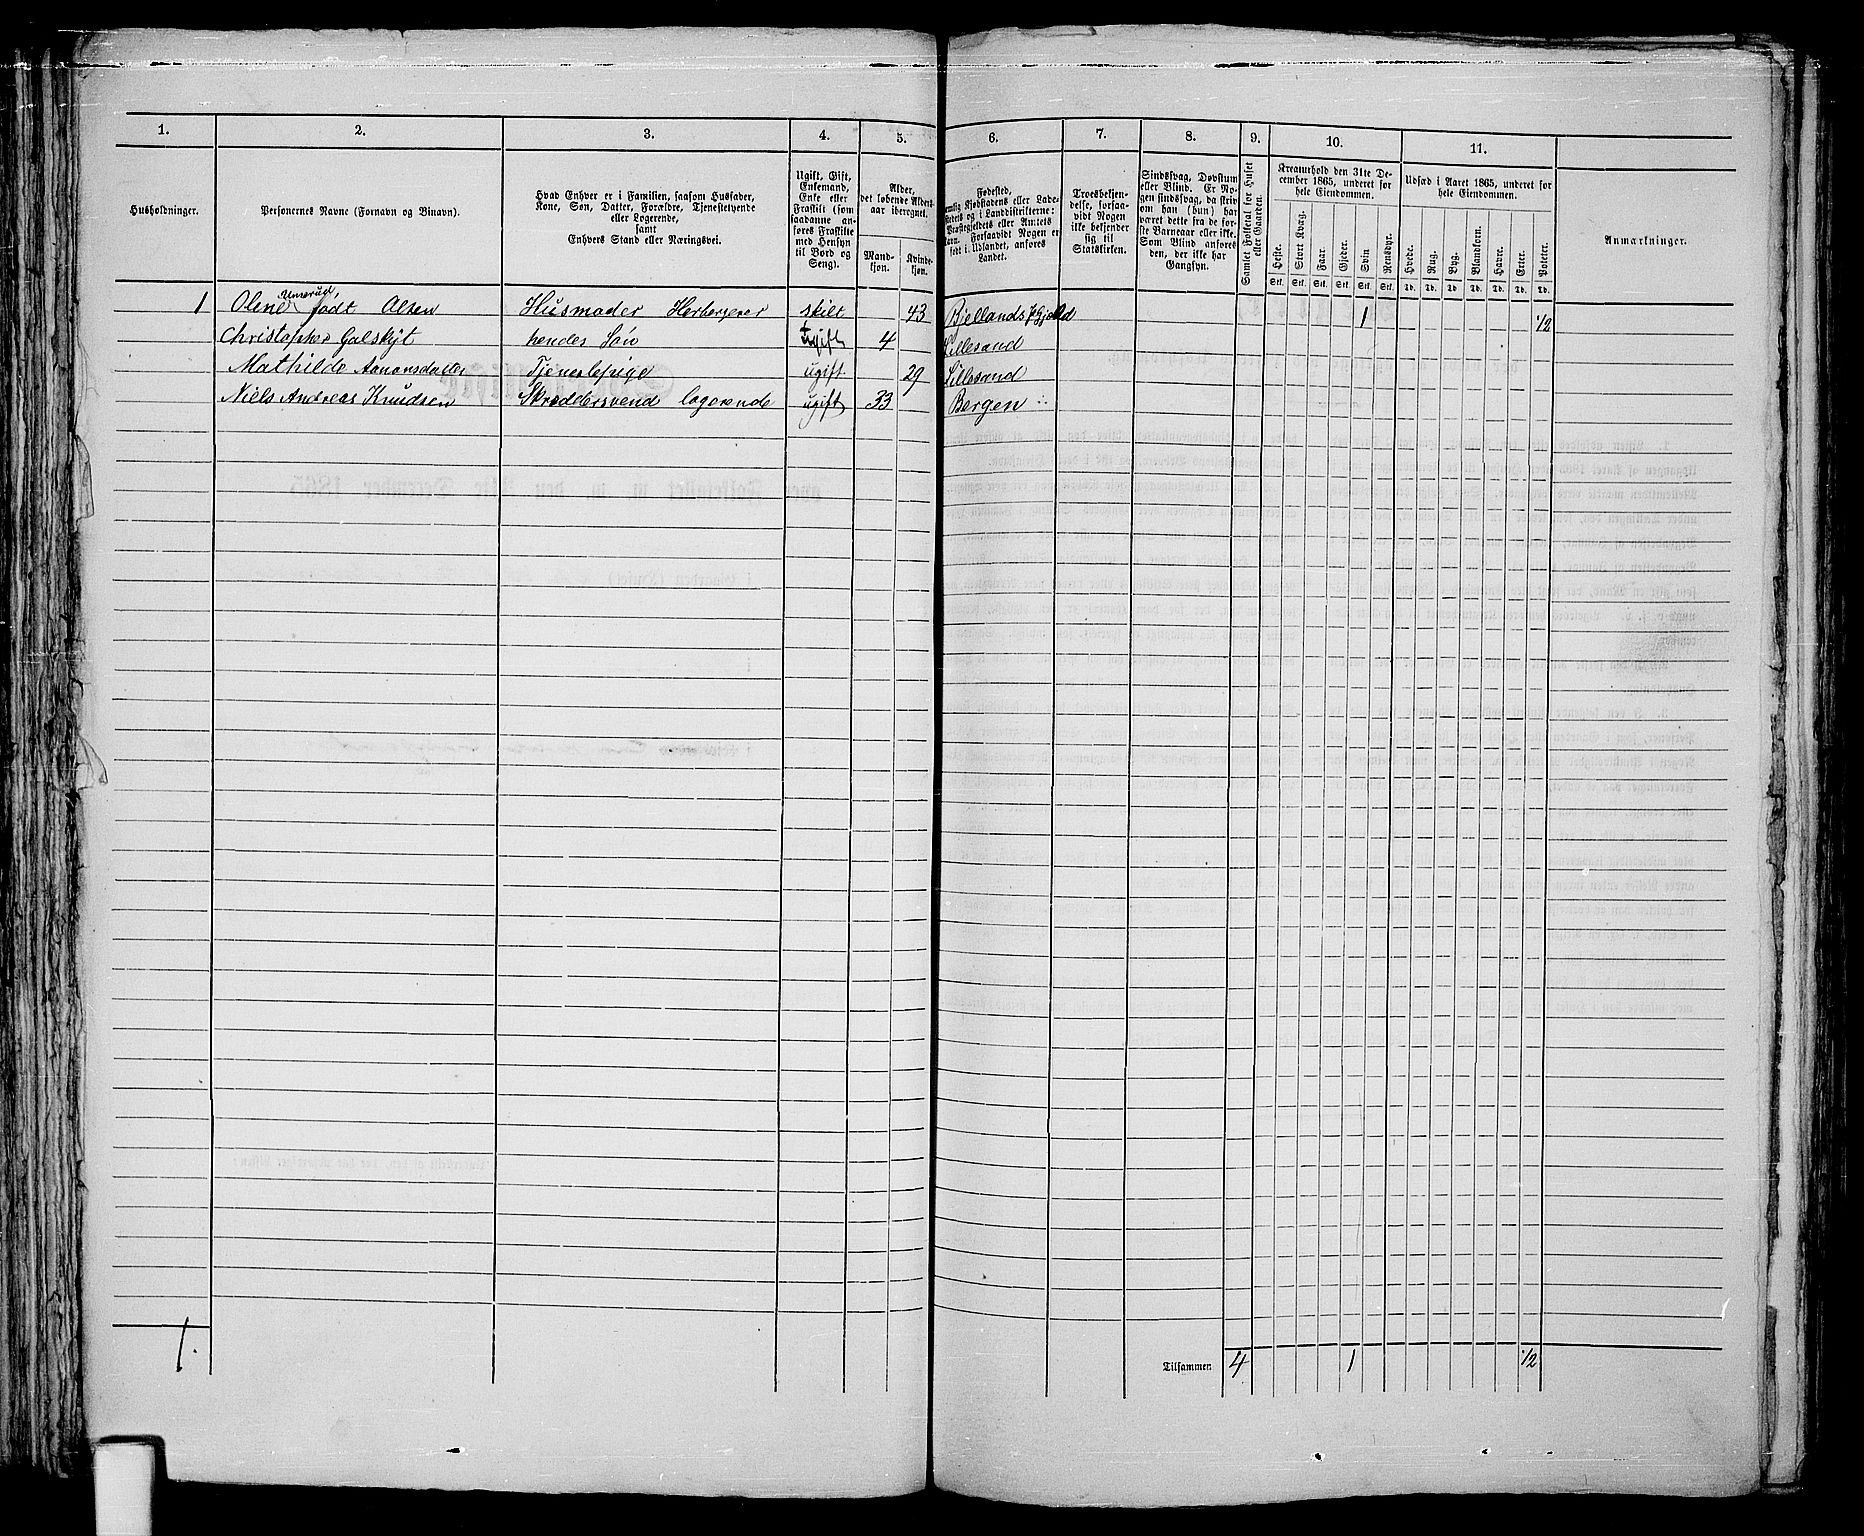 1. 2. 3. 4. 5. 6. 7. 8. 9. 10. 11.
Husholdninger.
Personernes Navne (Fornavn og Binavn).
Hvad Enhver er i Familien, saasom Husfader,
Kone, Søn, Datter, Forældre, Tjenestetyende
eller Logerende,
samt
Enhvers Stand eller Næringsvei.
Ugift, Gift,
Enkemand,
Enke eller
Fraskilt (som
saadanne an-
føres Fraskilte
med Hensyn
til Bord og
Seng).
Alder,
det løbende Alders-
aar iberegnet.
Mand-
kjøn.
Kvinde-
kjøn.
Fødested,
nemlig Kjøbstadens eller Lade-
stedets og i Landdistrikterne:
Præstegjeldets eller Amtets
Navn. Forsaavidt Nogen er
født i Udlandet, anføres
Landet.
Troesbekjen-
delse, forsaa-
vidt Nogen
ikke bekjender
sig til
Statskirken.
Sindssvag, Døvstum
eller Blind. Er No-
gen sindssvag, da skriv
om han (hun) har
været dette fra de før-
ste Barneaar eller ikke.
Som Blind anføres
den, der ikke har
Gangsyn.
Samlet Folketal for Huset
eller Gaarden.
Kreaturhold den 31te De-
cember 1865, underet for
hele Eiendommen.
Heste. Stort Kvæg. Faar. Gjeder. Svin Rensdyr.
Stk. Stk. Stk. Stk. Stk. Stk.
Udsæd i Aaret 1865, underet for
hele Eiendommen.
Hvede. Rug. Byg. Blandkorn. Havre. Erter. Poteter.
Td. Td. Td. Td. Td. Td. Td.
Anmærkninger.
1 Olene født Olsen Husmoder Herbergerer skilt 43 Bjellands 1 1/2
Christopher Galskýt hendes Søn ugift 4 Lillesand
Mathilde Aanonsdatter Tjenestepige ugift 29 Lillesand
Niels Andreas Knudsen Skræddersvend logerende ugift 33 Bergen
1.
Tilsammen 4 1 1/2